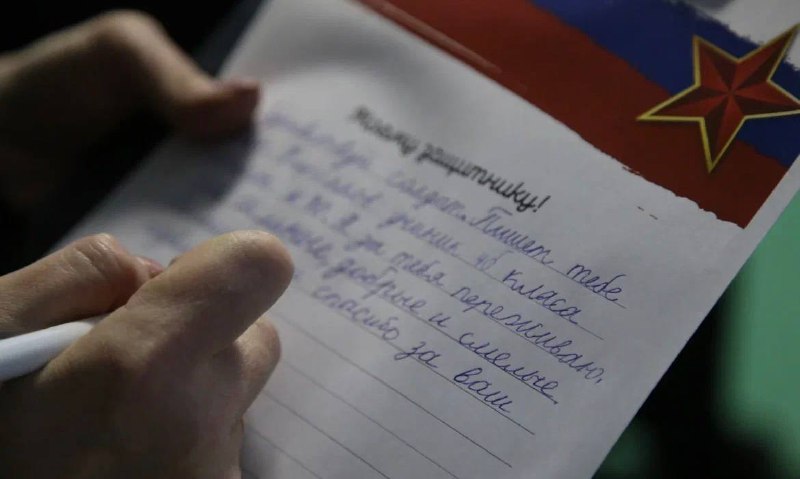 Моему защитнику!
солдат. Пишет тебе
ученик 4б класа
Я за тебя переживаю,
добрые и смелые.
спасибо за ваш